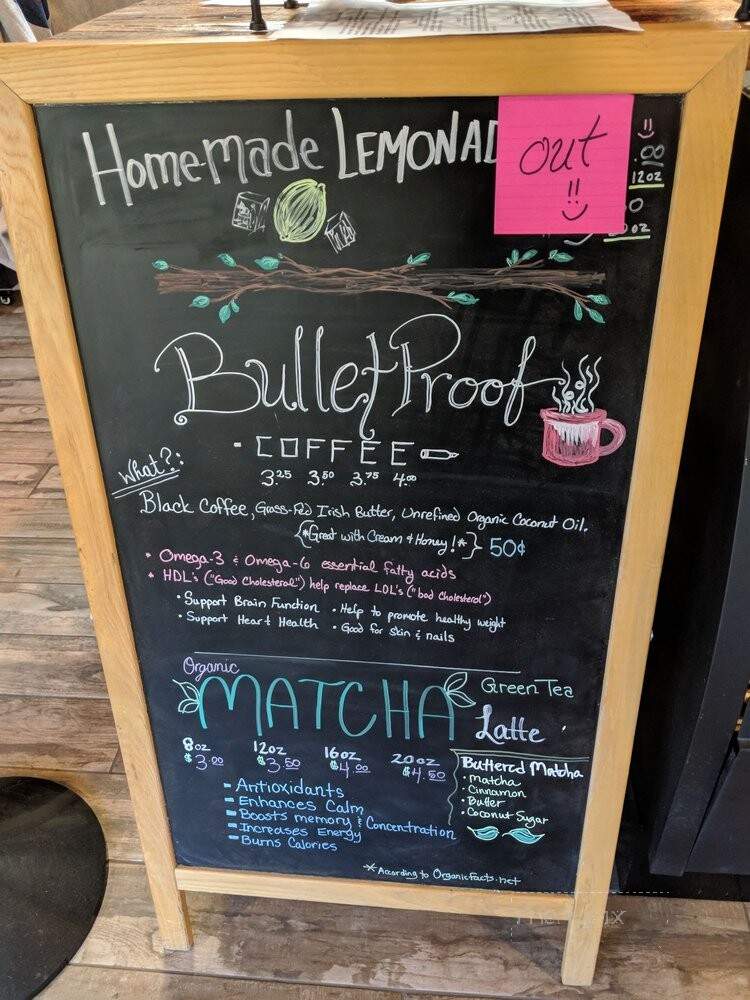 Homemade LEMONAD
out
!!
.00
12oz
0
oz
BulletProof
- COFFEE
3.25 3.50 3.75 4.00
What?:
Black Coffee, Grass-Fed Irish Butter, Unrefined Organic Coconut Oil.
{*Great with Cream & Honey!*} 50¢
* Omega-3 & Omega-6 essential fatty acids
* HDL's ("Good Cholesterol") help replace LDL's ("bad cholesterol")
• Support Brain Function • Help to promote healthy weight
• Support Heart Health • Good for skin & nails
Organic
MATCHA Green Tea
Latte
8oz 12oz 16oz 20oz
$3.00 $3.50 $4.00 $4.50
Buttered Matcha
• matcha
• Cinnamon
• Butter
• Coconut Sugar
- Antioxidants
- Enhances Calm
- Boosts memory & Concentration
- Increases Energy
- Burns Calories
* According to Organicfacts.net